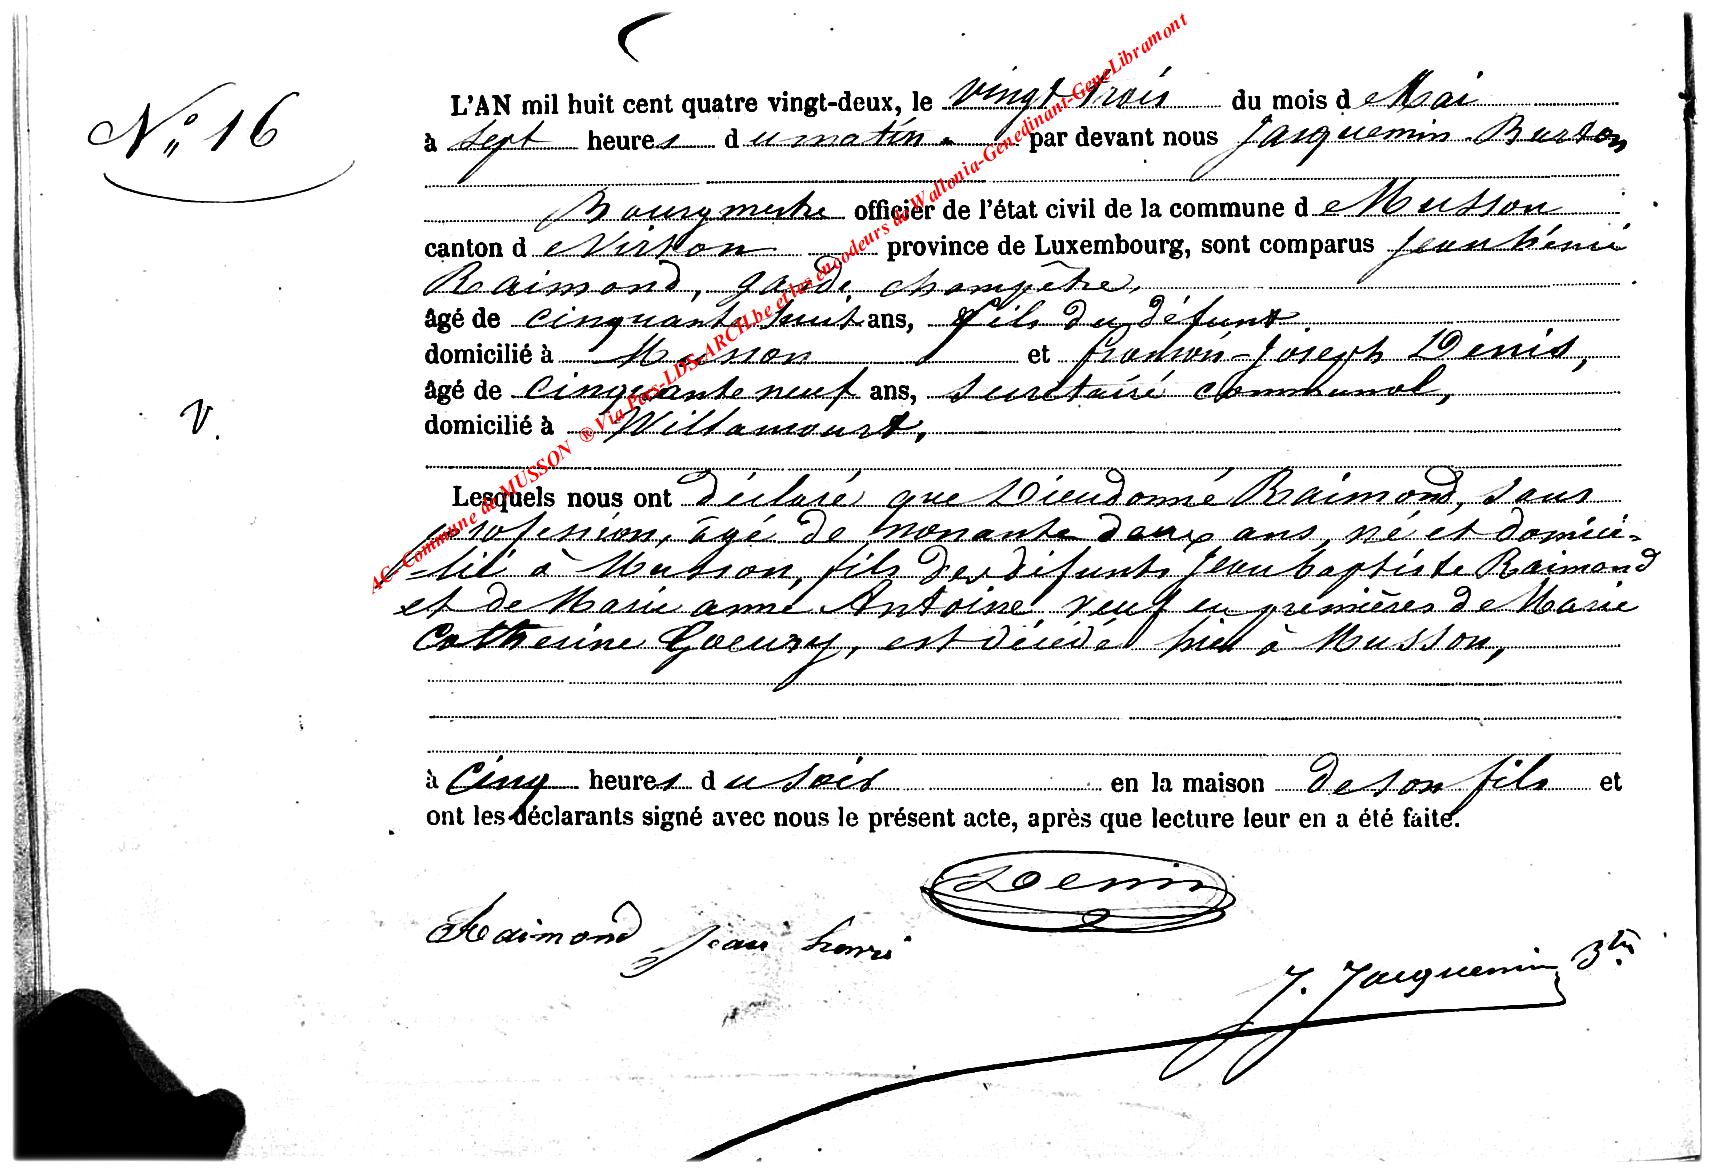 N° 16
L'AN mil huit cent quatre vingt-deux, le vingt trois du mois d e Mai
à sept heures du matin par devant nous Jacquemin Burton
Bourgmestre officier de l'état civil de la commune d e Musson
canton d e Virton province de Luxembourg, sont comparus Jean henri
Raimond, garde champêtre,
âgé de cinquante huit ans, fils du défunt
domicilié à Musson et francois-Joseph Denis,
âgé de cinquante neuf ans, secrétaire communal,
domicilié à Willancourt,
V.
Lesquels nous ont déclaré que Dieudonné Raimond, sans
profession, âgé de nonante deux ans, né et domici-
-lié à Musson, fils des défunts Jean baptiste Raimond
et de Marie anne Antoine veuf en premières de Marie
Catherine Goeury, est décédé hier à Musson,
à cinq heures du soir en la maison de son fils et
ont les déclarants signé avec nous le présent acte, après que lecture leur en a été faite.
Denis
Raimond Jean henri
J. Jacquemin Btn
AC- Commune de MUSSON ® Via Pers-LDS-ARCH.be et les encodeurs de Wallonia-Genedinant-GeneLibramont